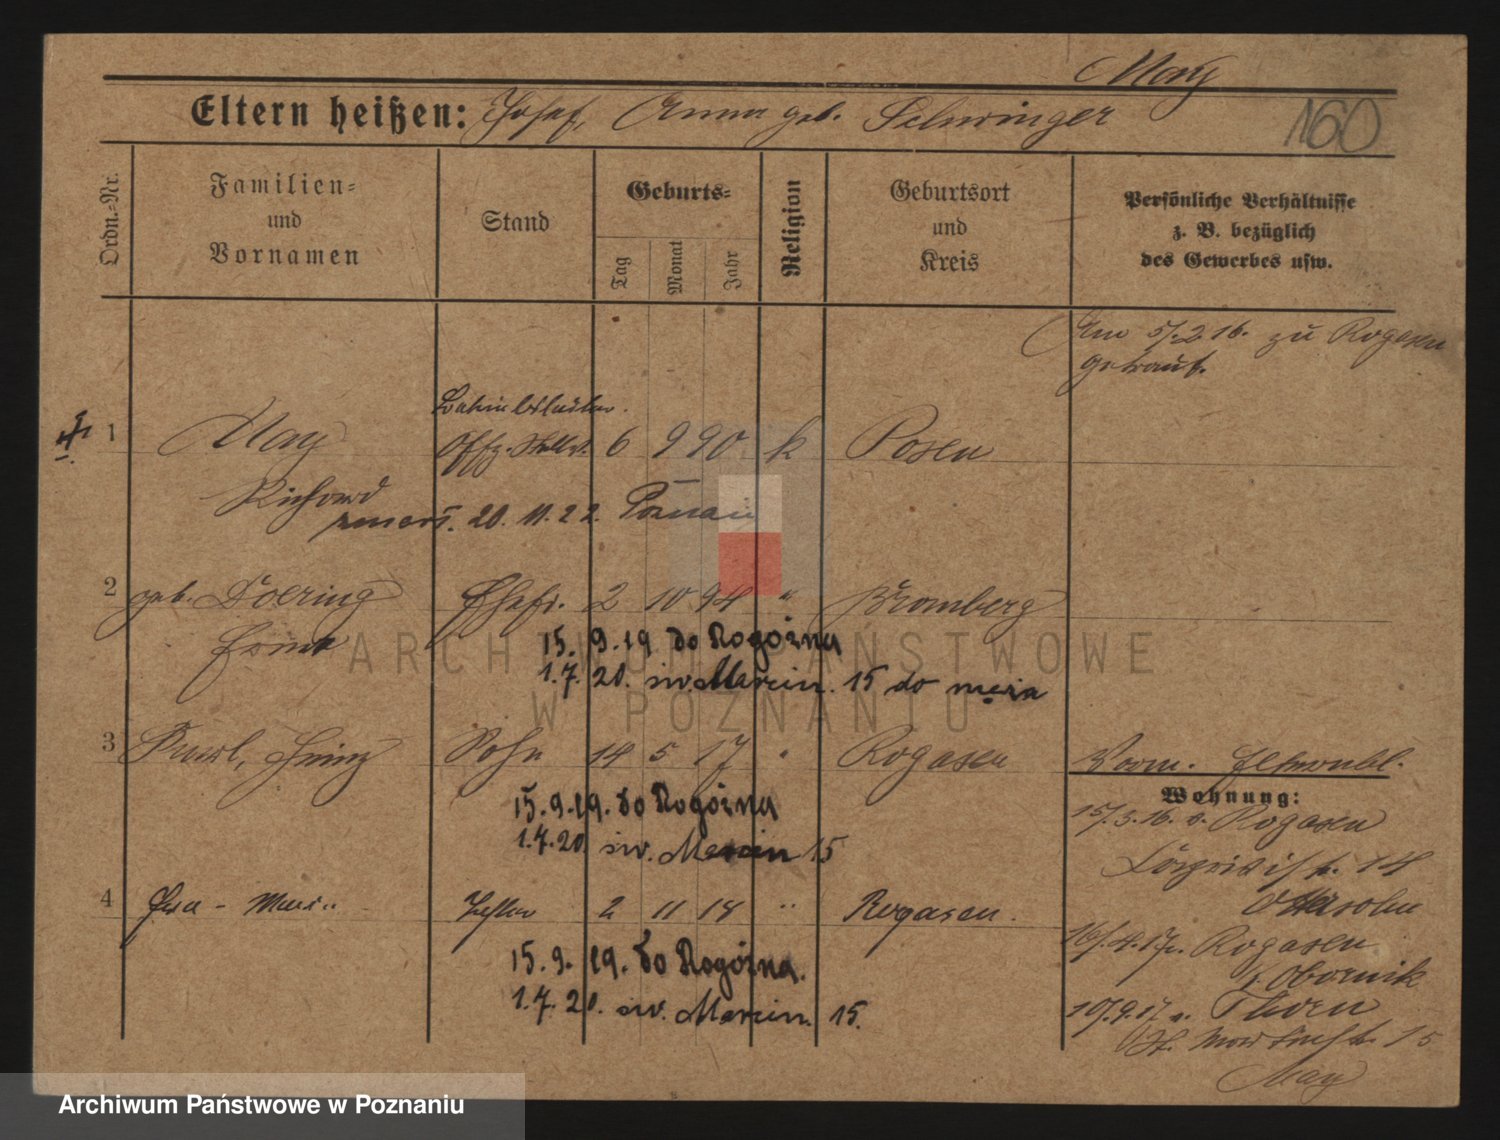 May
Eltern heißen: Josef, Anna geb. Schwinger
160
Ordn.=Nr.
Familien=
und
Vornamen
Stand
Geburts=
Tag
Monat
Jahr
Religion
Geburtsort
und
Kreis
Persönliche Verhältnisse
z. B. bezüglich
des Gewerbes usw.
Am 5/2.16. zu Rogasen
getraut.
1 May Offz. Stellv. 6 9 90 k Posen
Richard
zmarł. 20. 11. 22. Poznań
2 geb. Doering Ehefr. 2 10 94 " Bromberg
15. 9. 19 do Rogoźna
1. 7. 20. św. Marcin. 15 do męża
3 Heinz Sohn 14 5 17 " Rogasen
15. 9. 19. do Rogoźna
1. 7. 20 św. Marcin 15
4 2 11 18 " Rogasen.
15. 9. 19. do Rogoźna.
1. 7. 20. św. Marcin. 15.
Wohnung:
15/3.16. v. Rogasen
14
16/4.17 v. Rogasen
Obornik
10/9.17 v. Thorn
St. Martinstr. 15
May
ARCHIWUM PAŃSTWOWE
W POZNANIU
Archiwum Państwowe w Poznaniu